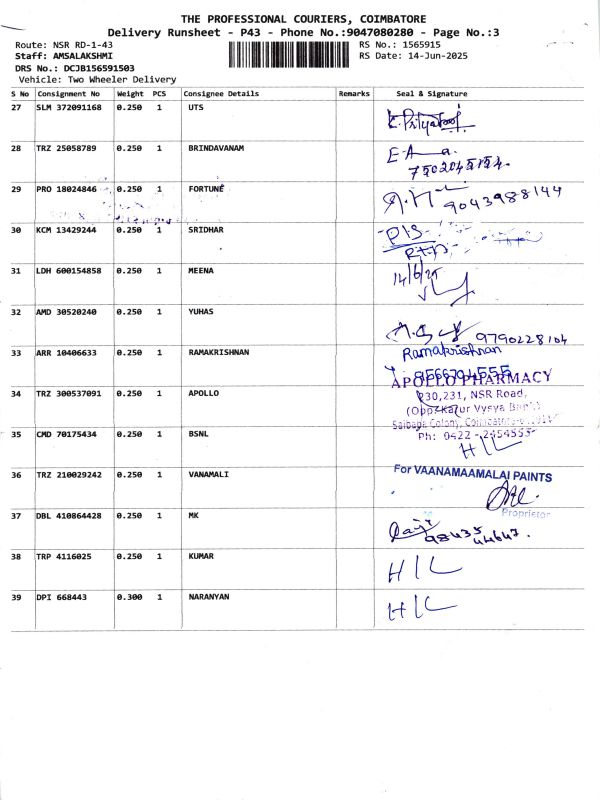 THE PROFESSIONAL COURIERS, COIMBATORE
Delivery Runsheet - P43 - Phone No.:9047080280 - Page No.:3
Route: NSR RD-1-43 RS No.: 1565915
Staff: AMSALAKSHMI RS Date: 14-Jun-2025
DRS No.: DCJB156591503
Vehicle: Two Wheeler Delivery
S No Consignment No Weight PCS Consignee Details Remarks Seal & Signature
27 SLM 372091168 0.250 1 UTS
28 TRZ 25058789 0.250 1 BRINDAVANAM
29 PRO 18024846 0.250 1 FORTUNE 9043988144
30 KCM 13429244 0.250 1 SRIDHAR
31 LDH 600154858 0.250 1 MEENA 14/6/25
32 AMD 30520240 0.250 1 YUHAS 9790228104
33 ARR 10406633 0.250 1 RAMAKRISHNAN Ramakrishnan
34 TRZ 300537091 0.250 1 APOLLO APOLLO PHARMACY
230,231, NSR Road,
(Opp: Karur Vysya Bank)
Saibaba Colony, Coimbatore
Ph: 0422 - 2454555
35 CMD 70175434 0.250 1 BSNL H/L
36 TRZ 210029242 0.250 1 VANAMALI For VAANAMAAMALAI PAINTS
Proprietor
37 DBL 410864428 0.250 1 MK
38 TRP 4116025 0.250 1 KUMAR H/L
39 DPI 668443 0.300 1 NARANYAN H/L